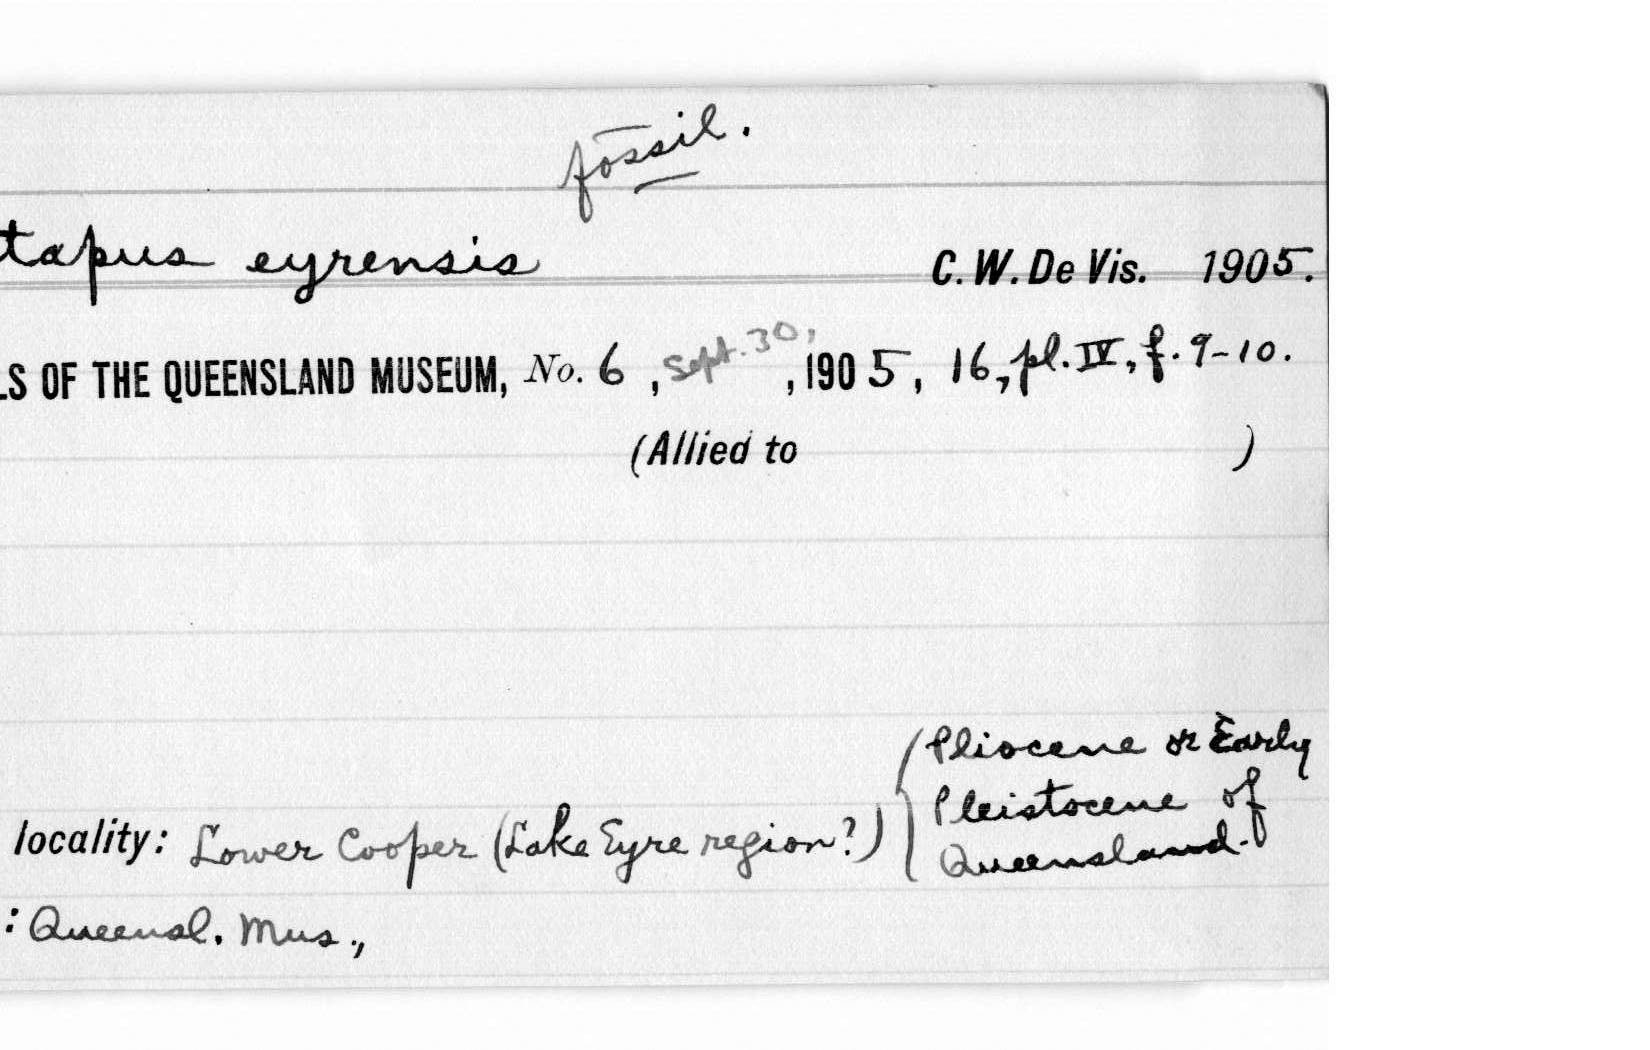 fossil.
tapus eyrensis C. W. De Vis. 1905.
LS OF THE QUEENSLAND MUSEUM, No. 6, Sept. 30, 1905, 16, pl. IV, f. 9-10.
(Allied to )
Pliocene or Early
Pleistocene of
locality: Lower Cooper (Lake Eyre region?)
Queensland.
: Queensl. Mus.,